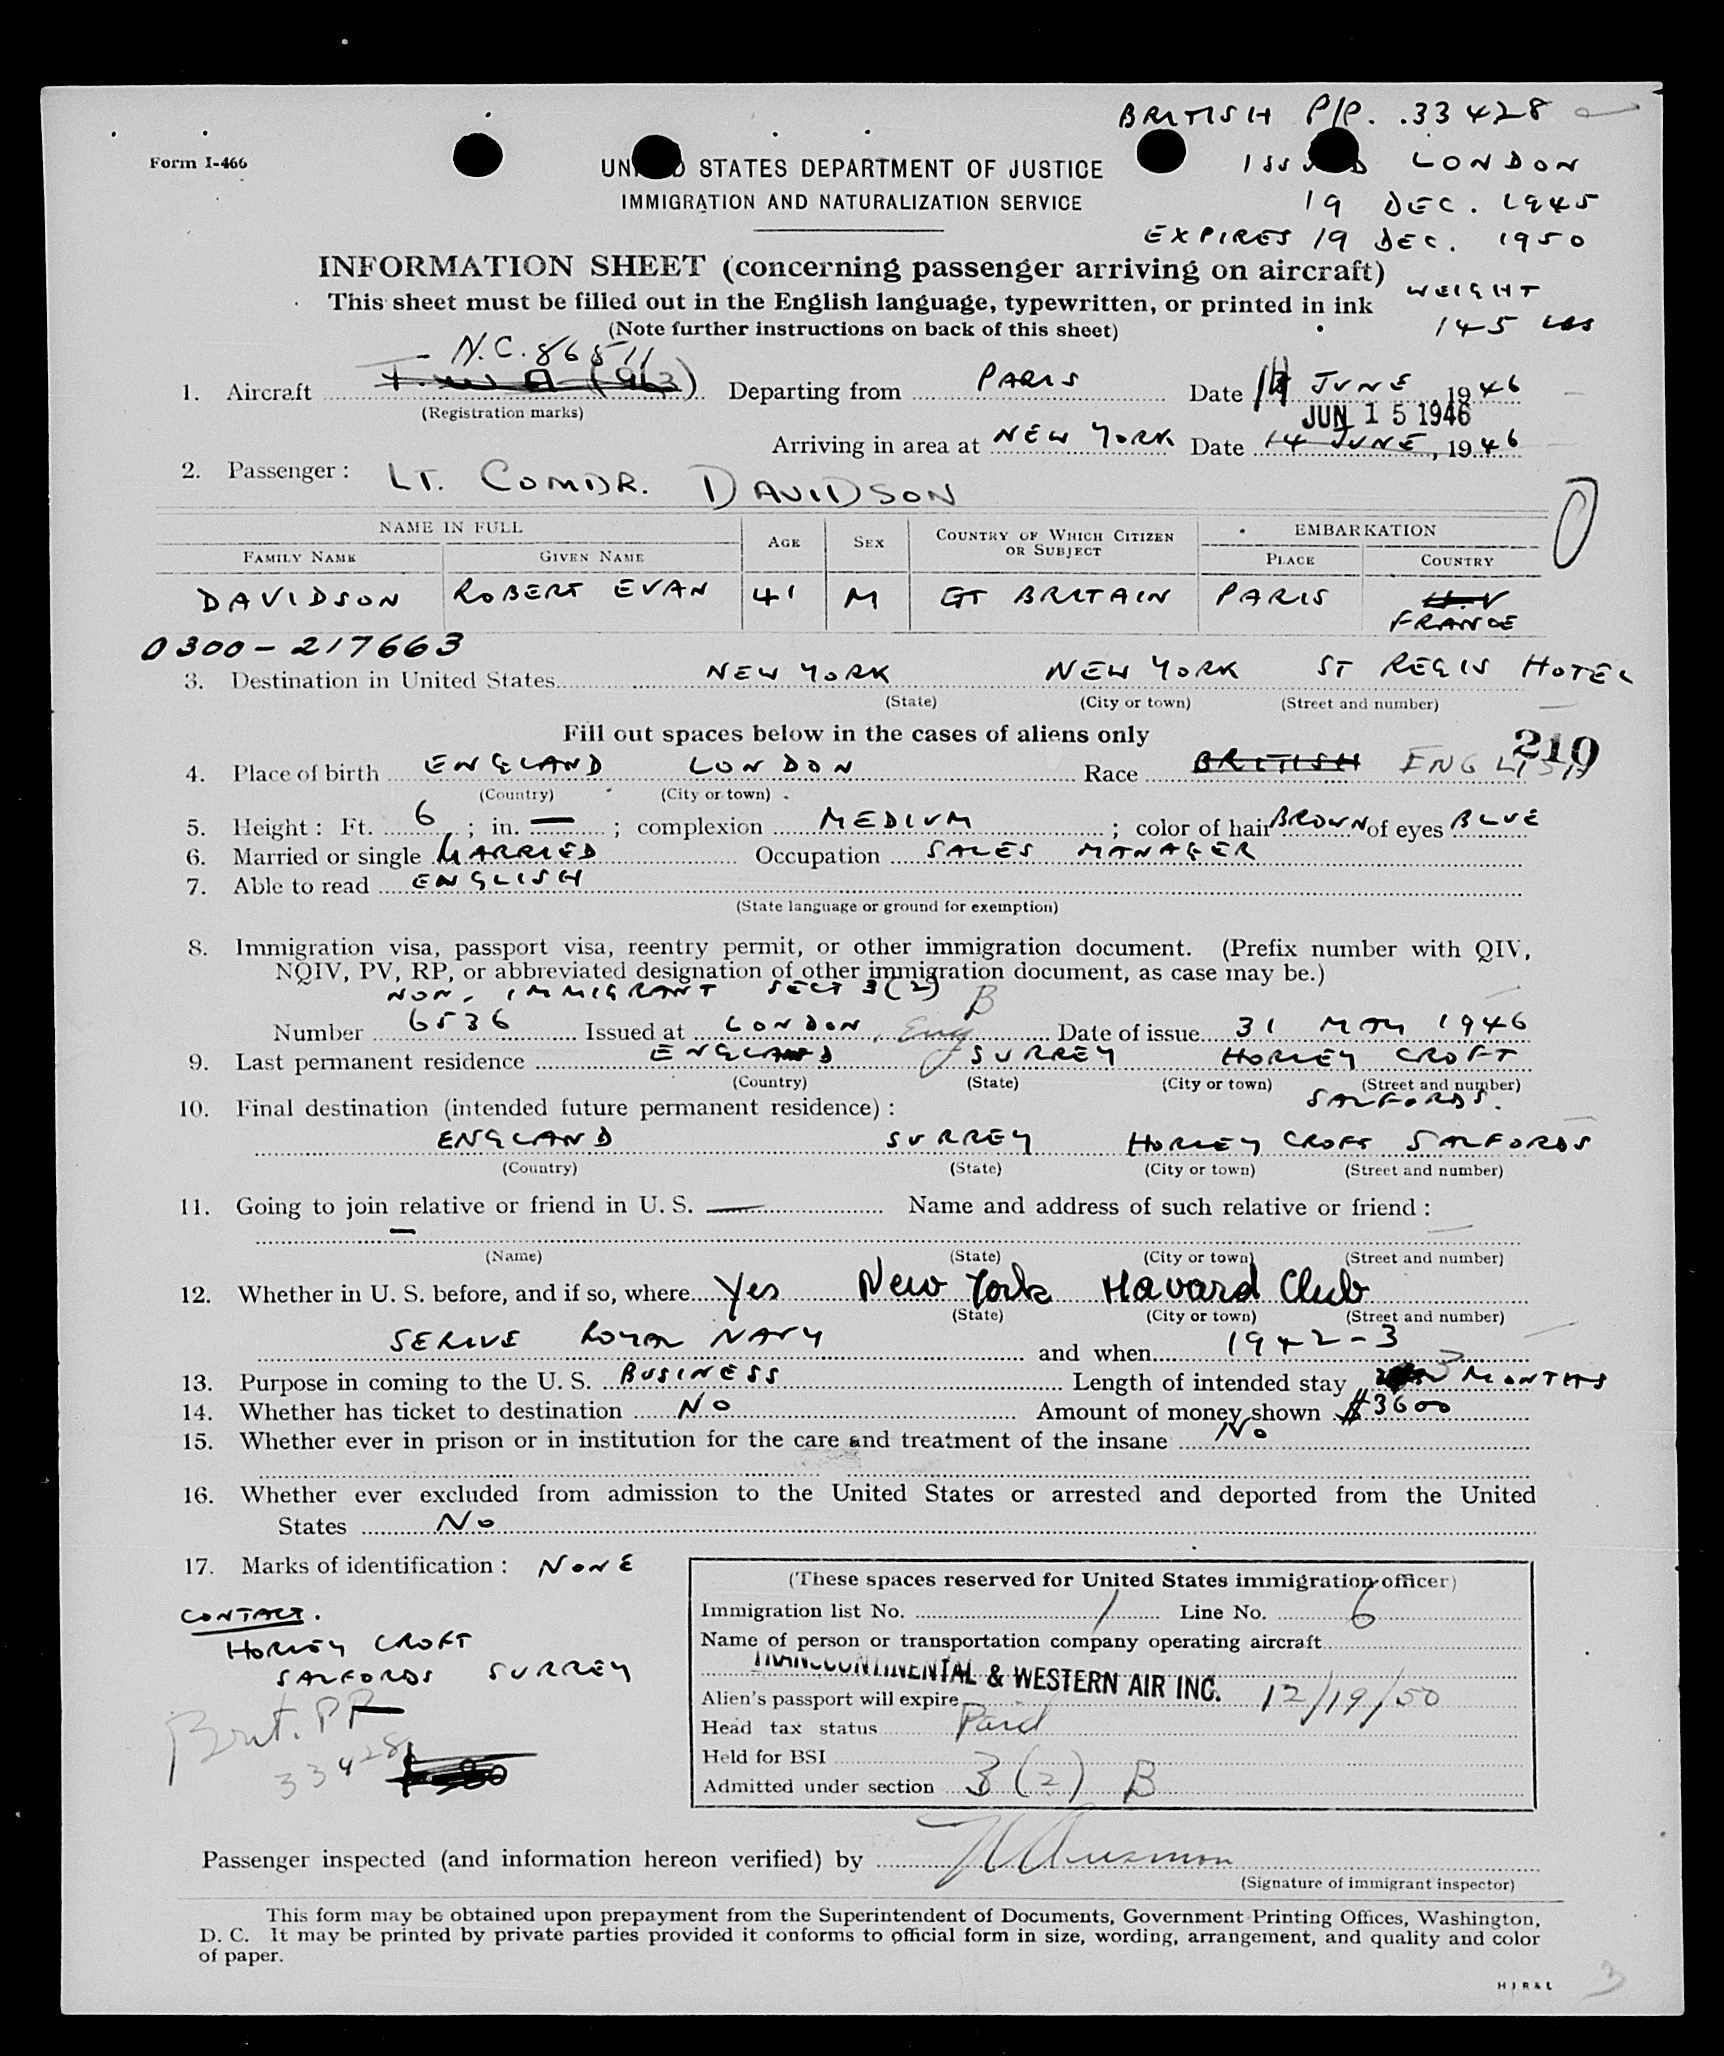 BRITISH P/P. 33428
Form I-466
UNITED STATES DEPARTMENT OF JUSTICE
ISSUED LONDON
IMMIGRATION AND NATURALIZATION SERVICE
19 DEC. 1945
EXPIRES 19 DEC. 1950
INFORMATION SHEET (concerning passenger arriving on aircraft)
WEIGHT
This sheet must be filled out in the English language, typewritten, or printed in ink
145 LBS
(Note further instructions on back of this sheet)
N.C. 86511
1. Aircraft T.W.A (963) Departing from PARIS Date JUNE, 1946
(Registration marks)
JUN 15 1946
Arriving in area at NEW YORK Date 14 JUNE, 1946
2. Passenger: LT. COMDR. DAVIDSON
0
NAME IN FULL AGE SEX COUNTRY OF WHICH CITIZEN OR SUBJECT EMBARKATION
FAMILY NAME GIVEN NAME PLACE COUNTRY
DAVIDSON ROBERT EVAN 41 M GT BRITAIN PARIS
FRANCE
0300-217663
3. Destination in United States NEW YORK NEW YORK ST REGIS HOTEL
(State) (City or town) (Street and number)
Fill out spaces below in the cases of aliens only
210
4. Place of birth ENGLAND LONDON Race BRITISH ENGLISH
(Country) (City or town)
5. Height: Ft. 6; in. —; complexion MEDIUM; color of hair BROWN of eyes BLUE
6. Married or single MARRIED Occupation SALES MANAGER
7. Able to read ENGLISH
(State language or ground for exemption)
8. Immigration visa, passport visa, reentry permit, or other immigration document. (Prefix number with QIV,
NQIV, PV, RP, or abbreviated designation of other immigration document, as case may be.)
NON. IMMIGRANT SECT 3(2) B
Number 6536 Issued at LONDON, Eng Date of issue 31 MAY 1946
9. Last permanent residence ENGLAND SURREY HORLEY CROFT
(Country) (State) (City or town) (Street and number)
SALFORDS.
10. Final destination (intended future permanent residence):
ENGLAND SURREY HORLEY CROFT SALFORDS
(Country) (State) (City or town) (Street and number)
11. Going to join relative or friend in U. S. — Name and address of such relative or friend:
—
(Name) (State) (City or town) (Street and number)
12. Whether in U. S. before, and if so, where Yes New York Havard Club
(State) (City or town) (Street and number)
SERIVE ROYAL NAVY and when 1942-3
13. Purpose in coming to the U. S. BUSINESS Length of intended stay 3 MONTHS
14. Whether has ticket to destination NO Amount of money shown $3600
15. Whether ever in prison or in institution for the care and treatment of the insane No
16. Whether ever excluded from admission to the United States or arrested and deported from the United
States No
17. Marks of identification: NONE
CONTACT.
HORLEY CROFT
SALFORDS SURREY
Brit. PP
33428
(These spaces reserved for United States immigration officer)
Immigration list No. 1 Line No. 6
Name of person or transportation company operating aircraft
TRANSCONTINENTAL & WESTERN AIR INC.
Alien's passport will expire 12/19/50
Head tax status Paid
Held for BSI
Admitted under section 3(2) B
Passenger inspected (and information hereon verified) by
(Signature of immigrant inspector)
This form may be obtained upon prepayment from the Superintendent of Documents, Government Printing Offices, Washington,
D. C. It may be printed by private parties provided it conforms to official form in size, wording, arrangement, and quality and color
of paper.
H J R & L
3